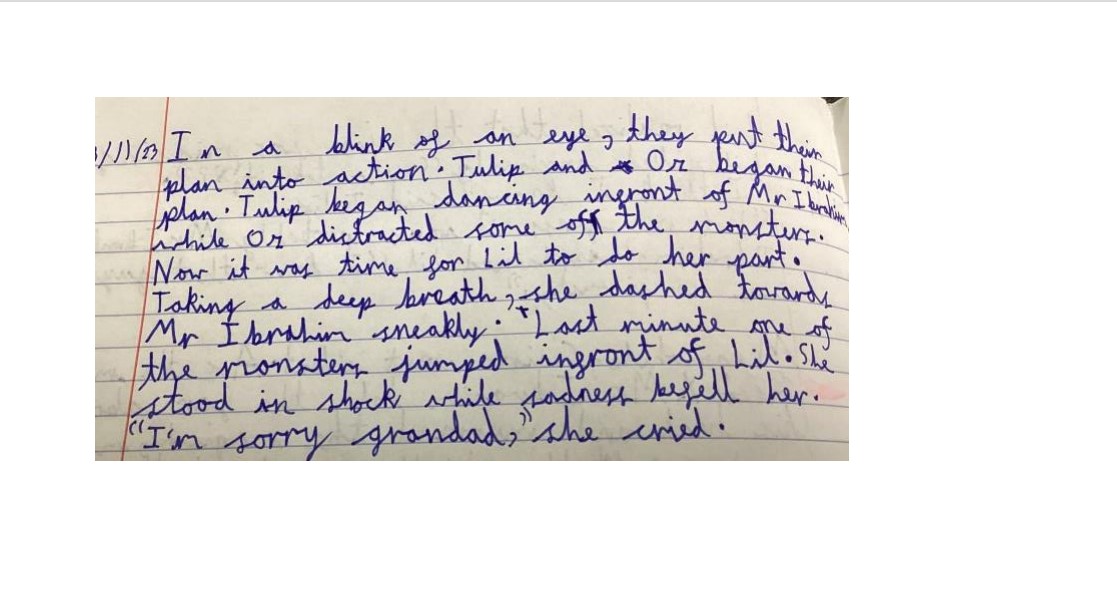 /11/23 In a blink of an eye, they put their
plan into action. Tulip and Oz began their
plan. Tulip began dancing infront of Mr Ibrahim
while Oz distracted some off the monsters.
Now it was time for Lil to do her part.
Taking a deep breath, she dashed towards
Mr Ibrahim sneakly. Last minute one of
the monsters jumped infront of Lil. She
stood in shock while sadness befell her.
"I'm sorry grandad," she cried.